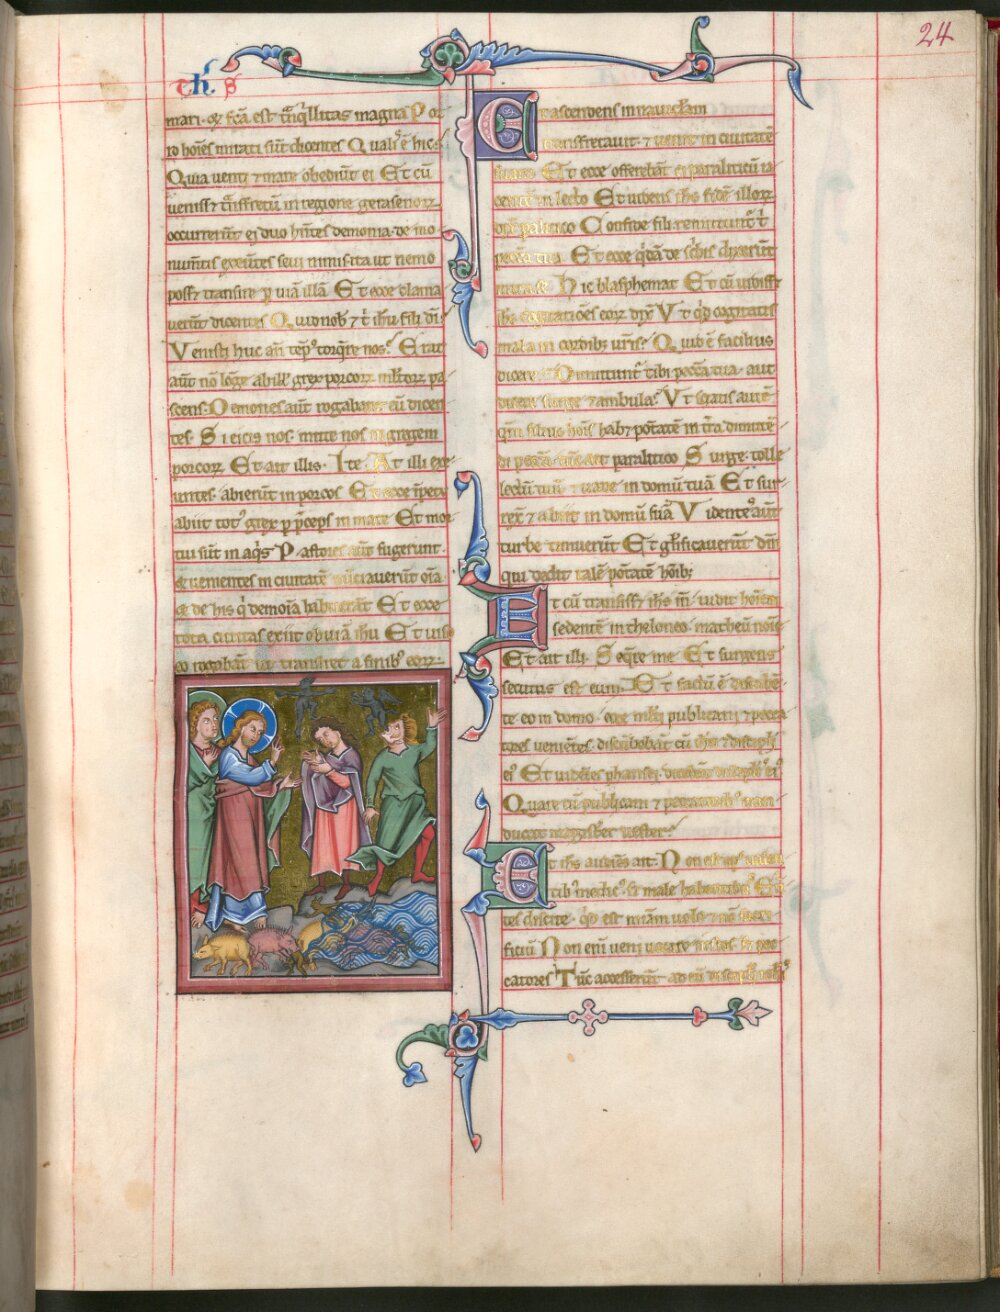 24
mari. et fcã est tñqͥllitas magna P or
ro hoĩes mirati sũt dicentes Q ualꝭ ẽ hic.
Quia venti ⁊ mare obediũt ei Et cũ
veniss; tñs fretũ in regione gerasenoꝝ
occurrerũt ei duo hñtes demonia. de mo
numẽtis exeũtes sevi nimis. ita ut nemo
poss; transire ꝑ viã illã Et ecce clama
verũt dicentes Q uid nob̃ ⁊ t̾ ihu fili dĩ
Venisti huc añ tẽpꝰ torq̃re nos. Erat
aũt nõ longe ab illꝭ grex porcoꝝ mltoꝝ pa
scens. Demones aũt rogabant eũ dicen
tes. Si eicis nos. mitte nos in gregem
porcoꝝ Et ait illis. Ite. At illi exe
untes. abierũt in porcos Et ecce ĩpetu
abiit totꝰ grex ꝑ p̃ceps in mare Et mor
tui sũt in aqͥs P astores aũt fugerunt.
et venientes in civitatẽ nũciaverũt oĩa.
et de his q̇ demoĩa habuerãt Et ecce
tota civitas exiit obviã ihu Et viso
eo rogabãt ut transiret a finibꝰ eoꝝ
E t ascendens in naviculam
transfretavit. ⁊ venit in civitatẽ
suam Et ecce offerebãt ei paraliticũ ia
centẽ in lecto Et videns ihs fidẽ illoꝝ
dix̃ palitico Confide fili remittunt̃ t̾
pecc̃a tua. Et ecce q̇dã de sc̾bis dixerũt
intra se Hic blasphemat Et cũ vidiss;
ihs cogitatiões eoꝝ dix̃ Vt qͥd cogitatis
mala in cordib; vr̃is? Quid ẽ facilius
dicere. Dimittunt̃ tibi pecc̃a tua. aut
dicere surge ⁊ ambula? Vt sciatis autẽ.
qm̃ filius hoĩs hab; ptãtem in tr̃a dimittẽ
di pecc̃a. tũc ait paralitico Surge. tolle
lectũ tuũ ⁊ vade in domũ tuã Et sur
rex̃ ⁊ abiit in domũ suã Videntes aũt
turbe timuerũt Et gl̃ificaverũt dm̃
qui dedit talẽ ptãtem hoĩb;
E t cũ transiss; ihs ĩn. vidit hoĩem
sedentẽ in theloneo. matheũ noĩe
Et ait illi. Seq̃re me Et surgens
secutus est eum. Et factũ ẽ discũbẽ
te eo in domo. ecce mlti publicani ⁊ pecca
tores veniẽtes discũbebãt cũ ihu ⁊ discipl̃is
eiꝰ Et vidẽtes pharisei. dicebãt discipl̃is eiꝰ
Quare cũ publicanis ⁊ peccatoribꝰ man
ducat magister vester?
A t ihs audiẽs ait. Non est opꝰ valen
tibꝰ medicꝰ. sꝫ male habentibꝰ Eũ
tes discite. qͥd est miãm volo ⁊ nõ sacri
ficiũ Non enĩ veni vocare iustos. sꝫ pec
catores Tũc accesserũt. ad eũ discipl̃i ioh̃is